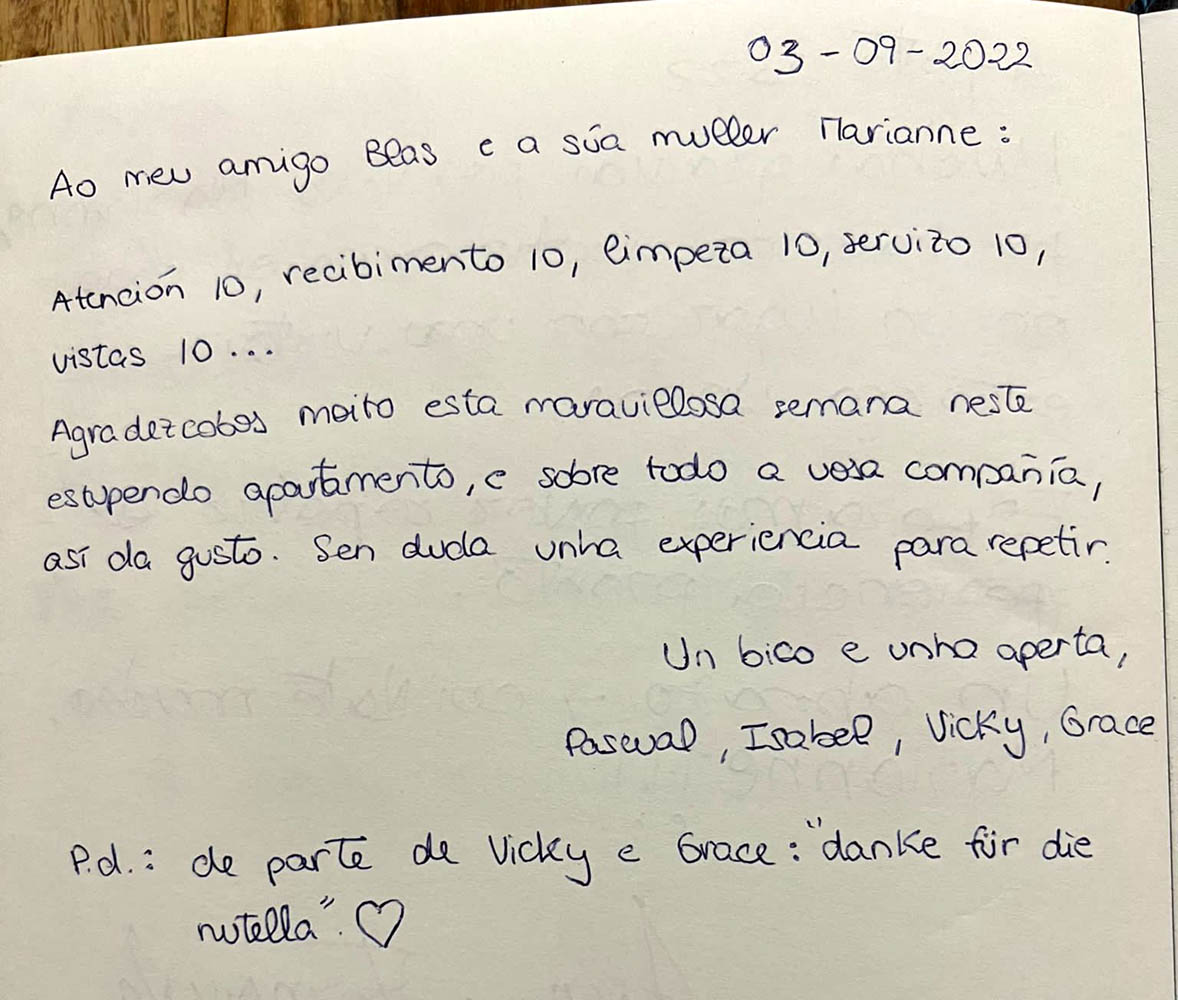 03-09-2022
Ao meu amigo Blas e a súa muller Marianne:
Atención 10, recibimento 10, limpeza 10, servizo 10,
vistas 10...
Agradezcobos moito esta maravillosa semana neste
estupendo apartamento, e sobre todo a vosa compañía,
así da gusto. Sen duda unha experiencia para repetir.
Un bico e unha aperta,
Pascual, Isabel, Vicky, Grace
P.d.: de parte de Vicky e Grace: "danke für die
nutella". ♡